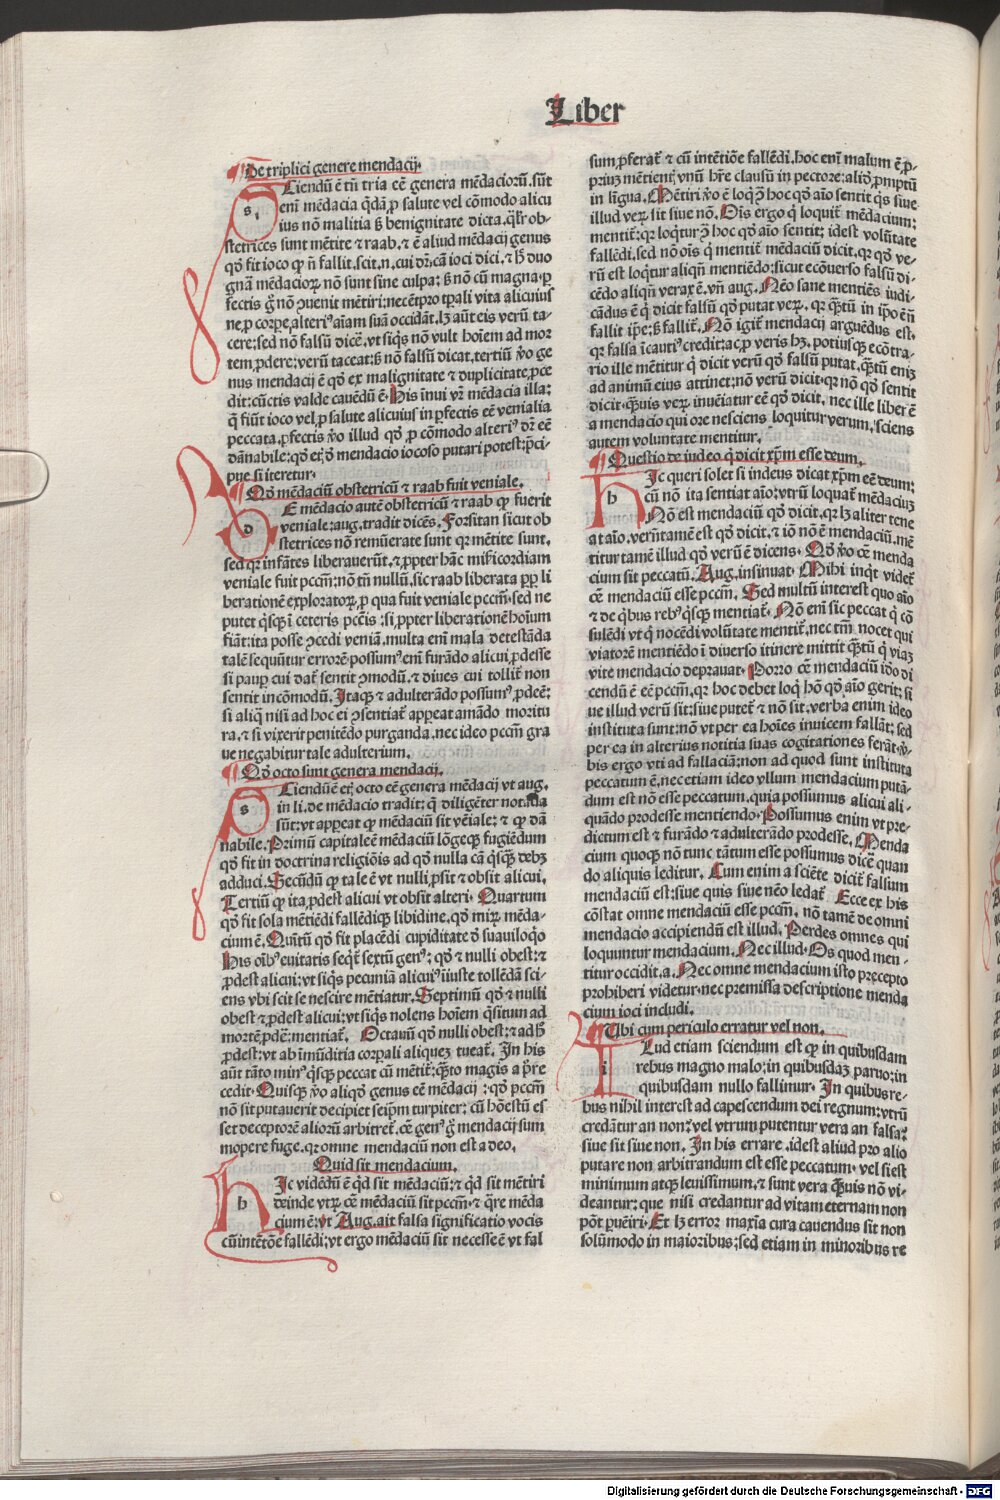 Liber
De triplici genere mendacij.
s Ciendū ē tñ tria eē genera mēdaciorū. sūt
enī mēdacia q̄dā p salute vel cōmodo alicu
ius nō malitia ß benignitate dicta. qłr ob-
stetrices sunt mētite ⁊ raab. ⁊ ē aliud mēdacij genus
qd̓ fit ioco qƺ ñ fallit. scit. n. cui dr̄. cā ioci dici. ⁊ hꝭ duo
gnā mēdaciorꝝ nō sunt sine culpa: ß nō cū magna. ꝑ
fectis g̊ nō ꝯuenit mētiri: nec etiā pro tpali vita alicuius
ne. ꝓ corꝑe. alteriꝰ aīam suā occidāt. lꝫ aūt eis verū ta-
cere: sed nō falsū dicē. vt siqs nō vult hoīem ad mor
tem ꝓdere: verū taceat: ß nō falsū dicat. tertiū v̊o ge
nus mendacij ē qd̓ ex malignitate ⁊ duplicitate ꝓce
dit: cūctis valde cauēdū ē. His īnui vr̄ mēdacia illa:
q̄ fiūt ioco vel ꝓ salute alicuius in ꝑfectis eē venialia
peccata. ꝑfectis v̊o illud qd̓ ꝓ cōmodo alteriꝰ dr̄ eē
dānabile: qd̓ et̄ d̓ mendacio iocoso putari potest: p̄ci-
pue si iteretur.
Qd̓ mēdaciū obstetricū ⁊ raab fuit veniale.
d E mēdacio autē obstetricū ⁊ raab qƺ fuerit
veniale: aug. tradit dicēs. Forsitan sicut ob
stetrices nō remūerate sunt qr mētite sunt.
sed qr infātes liberauerūt. ⁊ ꝓpter hāc mīricordiam
veniale fuit pccm̄: nō tñ nullū. sic raab liberata ꝓp li
berationē exploratorꝝ. ꝓ qua fuit veniale pccm̄. sed ne
putet qsqƺ ī ceteris pccīs: si ꝓpter liberationē hoīum
fiāt: ita posse ꝯcedi veniā. multa enī mala detestāda
talē sequūtur errorē possumꝰ enī furādo alicui ꝓdesse
si pauꝑ cui dat̄ sentit ꝯmodū. ⁊ diues cui tollit̄ non
sentit incōmodū. Itaqƺ ⁊ adulterādo possumꝰ ꝓdeē:
si aliq̄ nisi ad hoc ei ꝯsentiat̄ appeat amādo moritu
ra. ⁊ si vixerit penitēdo purganda. nec ideo pccm̄ gra
ue negabitur tale adulterium.
Qd̓ octo sunt genera mendacij.
s Ciendū ē et̄ octo eē genera mēdacij vt aug.
in li. de mēdacio tradit: q̄ diligēter notāda
sūt: vt appeat qƺ mēdaciū sit vēiale: ⁊ qƺ dā
nabile. Primū capitale ē mēdaciū lōgeqƺ fugiēdum
qd̓ fit in doctrina religiōis ad qd̓ nulla cā qsqƺ debꝫ
adduci. Secūdū qƺ tale ē vt nulli ꝓsit ⁊ obsit alicui.
Tertiū qƺ ita ꝓdest alicui vt obsit alteri. Quartum
qd̓ fit sola mētiēdi fallēdiqƺ libidine. qd̓ mirꝝ mēda-
cium ē. Quītū qd̓ fit placēdi cupiditate d̓ suauiloqo
His oībꝰ euitatis seqt̄ sextū genꝰ: qd̓ ⁊ nulli obest: ⁊
ꝓdest alicui: vt siqs pecuniā alicuiꝰ iuste tollēdā sci-
ens vbi scit se nescire mētiatur. Septimū qd̓ ⁊ nulli
obest ⁊ ꝓdest alicui: vt siqs nolens hoīem q̄situm ad
mortē ꝓdeē: mentiat̄. Octauū qd̓ nulli obest: ⁊ ad hꝭ
ꝓdest: vt ab īmūditia corꝑali aliquez tueat̄. In his
aūt tāto minꝰ qsqƺ peccat cū mētit̄: q̄to magis a pre
cedit. Quisqƺ v̊o aliqd̓ genus eē mēdacij: qd̓ pccm̄
nō sit putauerit decipiet seipm̄ turpiter: cū hōestū es
set deceptorē aliorū arbitret̄. cē genꝰ g̊ mendacij sum
mopere fuge. qr omne mendaciū non est a deo.
Quid sit mendacium.
h Ic vidēdū ē qd sit mēdaciū: ⁊ qd sit mētiri
deinde vtrꝝ cē mēdaciū sit pccm̄. ⁊ q̄re mēda
cium ē: vt Aug. ait falsa significatio vocis
cū intētōe fallēdi: vt ergo mēdaciū sit necesse ē vt fal
sum ꝓferat̄ ⁊ cū intētiōe fallēdi. hoc enī malum ē ꝓ-
priuꝫ mētient̄. vnū hr̄e clausū in pectore: aliud ꝓmptū
in līgua. Mētiri v̊o ē loqi ꝯ hoc qd̓ aīo sentit qs siue
illud verꝝ sit siue nō. Ois ergo q loquit̄ mēdacium:
mentit̄: qr loqtur ꝯ hoc qd̓ aīo sentit: idest volūtate
fallēdi. sed nō ois q mentit̄ mēdaciū dicit. qr qd̓ ve-
rū est loqtur aliqn̄ mentiēdo: sicut ecōuerso falsū di-
cēdo aliqn̄ verax ē. vn̄ aug. Nēo sane mentiēs iudi-
cādus ē q dicit falsū qd̓ putat verꝝ. qr q̄tū in ip̄o ē ñ
fallit ip̄e: ß fallit̄. Nō igit̄ mendacij arguēdus est.
qr falsa īcautiꝰ credit: ac ꝓ veris hꝫ. potiusqƺ ecōtra-
rio ille mētitur q dicit verū qd̓ falsū putat. q̄tū eniꝫ
ad animū eius attinet: nō verū dicit. qr nō qd̓ sentit
dicit. q̄uis verꝝ inuēiatur eē qd̓ dicit. nec ille liber ē
a mendacio qui ore nesciens loquitur verum. sciens
autem voluntate mentitur.
Questio de iudeo q dicit xpm̄ esse deum.
h Ic queri solet si iudeus dicat xpm̄ eē deum:
cū nō ita sentiat aīo: vtrū loquat̄ mēdaciuꝫ
Nō est mendaciū qd̓ dicit. qr lꝫ aliter tene
at aīo. verūtamē est qd̓ dicit. ⁊ iō nō ē mendaciū. mē
titur tamē illud qd̓ verū ē dicens. Qd̓ v̊o cē menda
cium sit peccatū. Aug. insinuat. Mihi inqt videt̄
cē mendaciū esse pccm̄. Sed multū interest quo aīo
⁊ de qbus rebꝰ qsqƺ mentiat̄. Nō enī sic peccat q cō
sulēdi vt q nocēdi volūtate mentit̄. nec tm̄ nocet qui
viatorē mentiēdo ī diuerso itinere mittit q̄tū q viaꝫ
vite mendacio deprauat. Porro cē mendaciū iō di
cendū ē eē pccm̄. qr hoc debet loqi hō qd̓ aīo gerit: si
ue illud verū sit: siue putet̄ ⁊ nō sit. verba enim ideo
instituta sunt: nō vt per ea hoīes inuicem fallāt: sed
per ea in alterius notitia suas cogitationes ferāt. v̊-
bis ergo vti ad fallaciā: non ad quod sunt instituta
peccatum ē. nec etiam ideo vllum mendacium putā-
dum est nō esse peccatum. quia possumus alicui ali-
quādo prodesse mentiendo. Possumus enim vt pre-
dictum est ⁊ furādo ⁊ adulterādo prodesse. Menda
cium quoqƺ nō tunc tātum esse possumus dicē quan
do aliquis leditur. Cum enim a sciēte dicit̄ falsum
mendaciū est: siue quis siue nēo ledat̄. Ecce ex his
cōstat omne mendaciū esse pccm̄. nō tamē de omni
mendacio accipiendū est illud. Perdes omnes qui
loquuntur mendacium. Nec illud. Os quod men-
titur occidit. a. Nec omne mendacium isto precepto
prohiberi videtur. nec premissa descriptione menda
cium ioci includi.
Ubi cum periculo erratur vel non.
i Lud etiam sciendum est qƺ in quibusdam
rebus magno malo: in quibusdaꝫ paruo: in
quibusdam nullo fallimur. In quibus re-
bus nihil interest ad capescendum dei regnum: vtrū
credātur an non: vel vtrum putentur vera an falsa:
siue sit siue non. In his errare. idest aliud pro alio
putare non arbitrandum est esse peccatum. vel si est
minimum atqƺ leuissimum. ⁊ sunt vera q̄uis nō vi-
deantur: que nisi credantur ad vitam eternam non
pōt ꝑueīri. Et lꝫ error maxīa cura cauendus sit non
solūmodo in maioribus: sed etiam in minoribus re
Digitalisierung gefördert durch die Deutsche Forschungsgemeinschaft - DFG